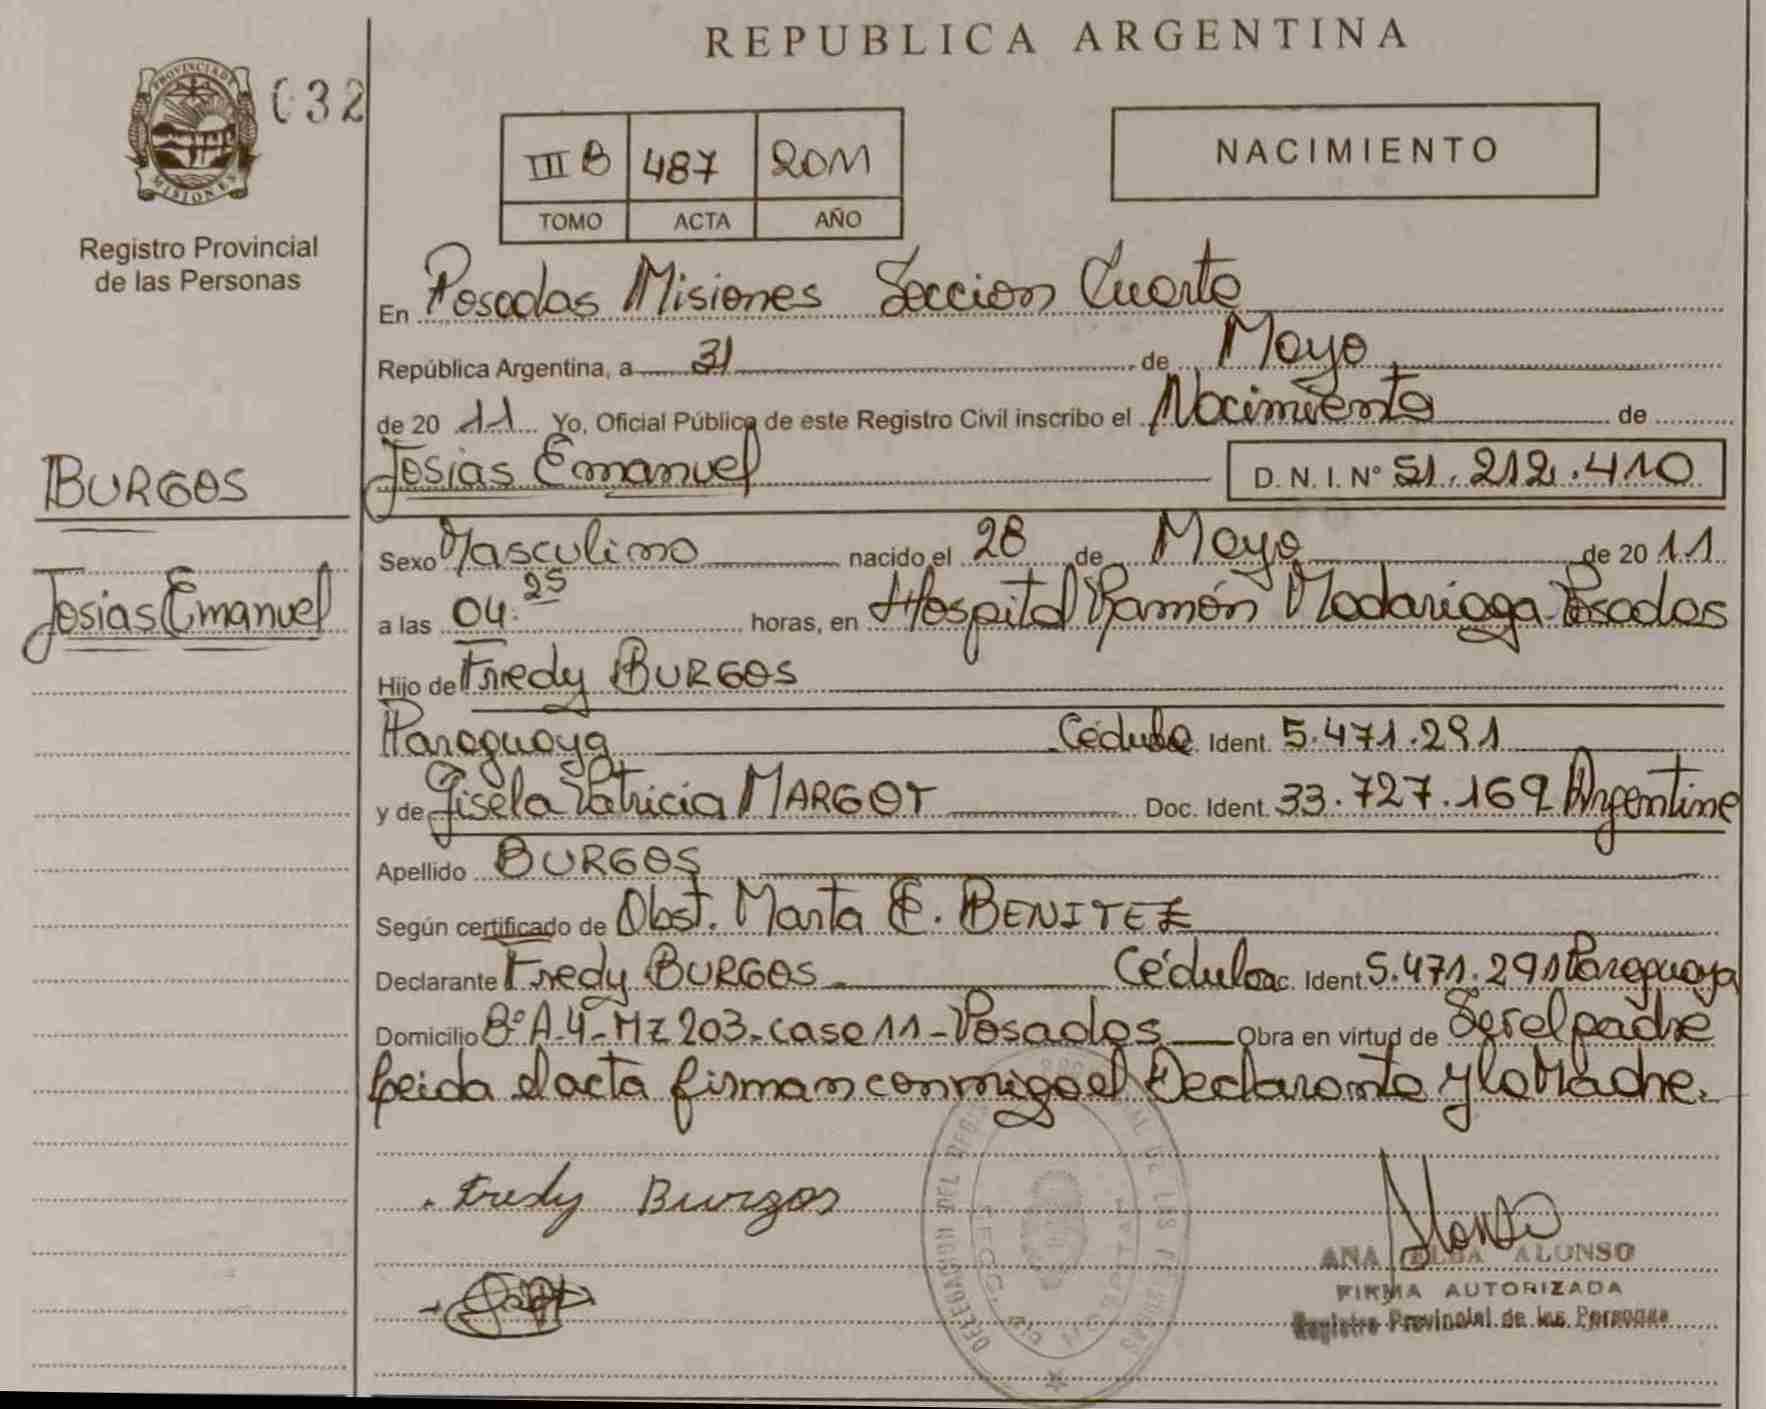 REPUBLICA ARGENTINA
PROVINCIA DE MISIONES
032
Registro Provincial
de las Personas
III B 487 2011
TOMO ACTA AÑO
NACIMIENTO
En Posadas Misiones Seccion Cuarta
República Argentina, a 31 de Mayo
de 20 11 Yo, Oficial Público de este Registro Civil inscribo el Nacimiento de
Josias Emanuel D. N. I. Nº 51.212.410
BURGOS
Josias Emanuel
Sexo Masculino nacido el 28 de Mayo de 20 11
a las 04.25 horas, en Hospital Ramón Madariaga Posadas
Hijo de Fredy BURGOS
Paraguaya Cédula Ident. 5.471.291
y de Gisela Patricia MARGOT Doc. Ident. 33.727.169 Argentina
Apellido BURGOS
Según certificado de Obst. Marta E. BENITEZ
Declarante Fredy BURGOS Cédula c. Ident. 5.471.291 Paraguaya
Domicilio Bº A-4-Mz 203-casa 11-Posadas Obra en virtud de Ser el padre
Leida el acta firman conmigo el Declarante y la Madre.
Fredy Burgos
Alonso
ANA ELBA ALONSO
FIRMA AUTORIZADA
Registro Provincial de las Personas
DELEGACION DEL REGISTRO PROVINCIAL DE LAS PERSONAS
HOSPITAL